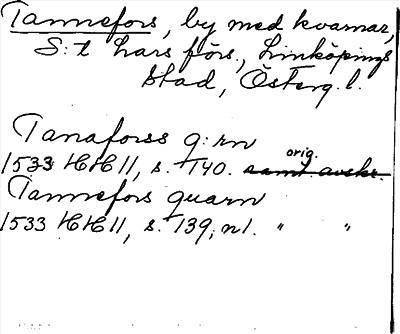 Tannefors, by med kvarnar,
S:t Lars förs., Linköpings
stad, Österg. l.
Tanaforss q:rn
orig.
1533 HH 11, s. 140. samt. avskr.
Tannefors quarn
1533 HH 11, s. 139, nl. " "